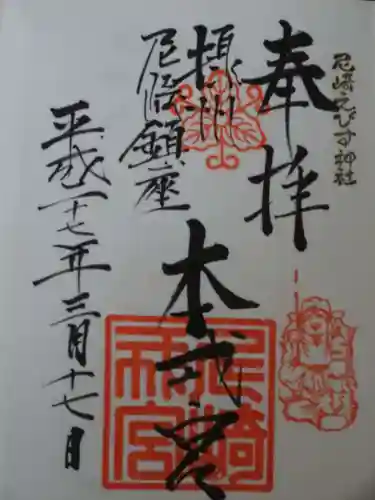 尼崎えびす神社
奉拝
摂州
尼崎鎮座
本戎宮
平成二十七年三月十七日
尼崎
本宮